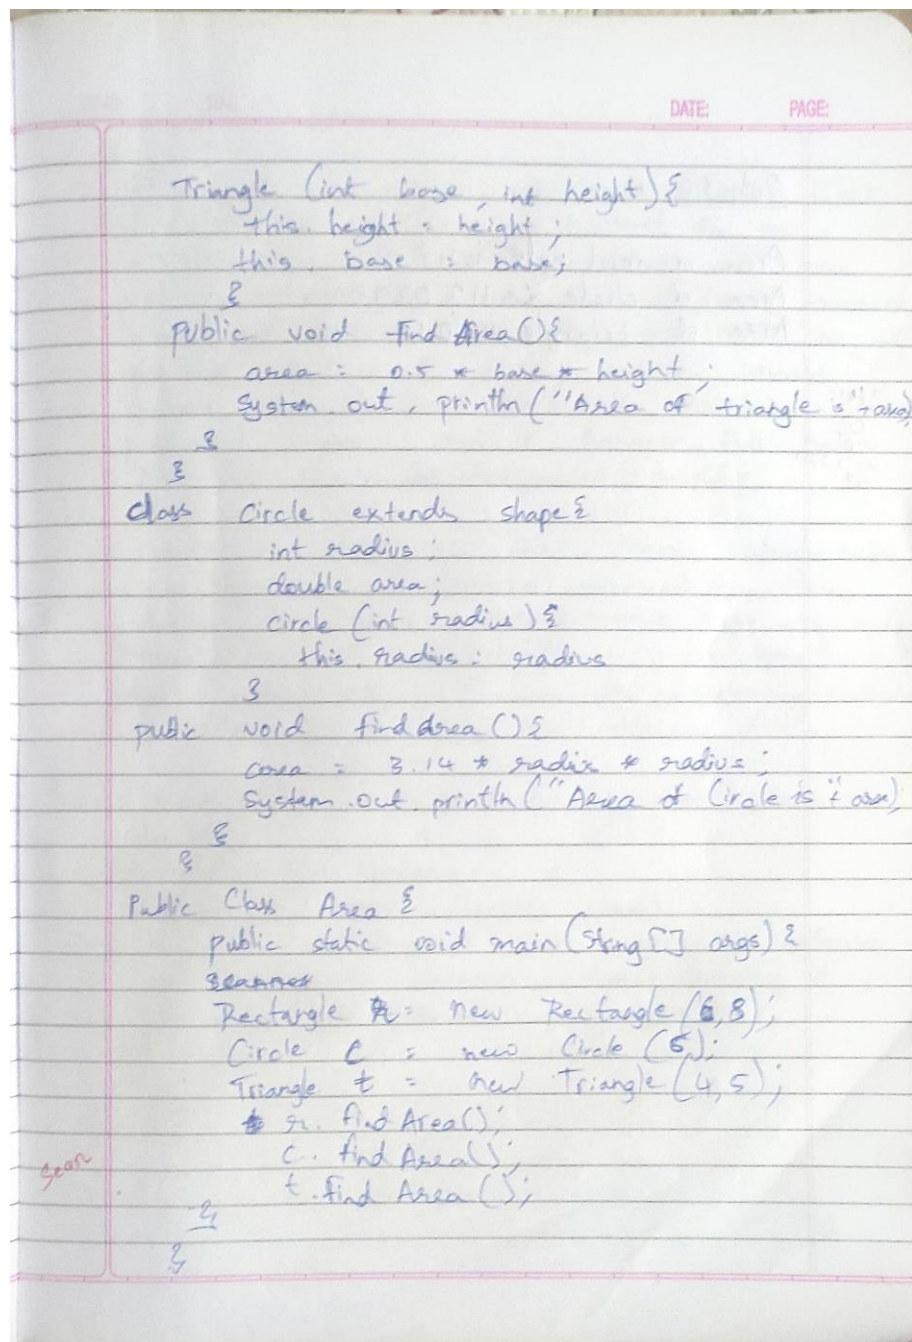 DATE: PAGE:
Triangle (int base, int height){
this. height = height;
this. base = base;
}
public void find Area(){
area = 0.5 * base * height;
System. out. println("Area of triangle is"+area)
}
}
class Circle extends shape{
int radius;
double area;
circle (int radius){
this. radius = radius
}
public void find Area(){
area = 3.14 * radius * radius;
System.out.println("Area of Circle is"+ area);
}
}
Public Class Area {
public static void main(String[] args){
Scanner
Rectangle r = new Rectangle(6,8);
Circle c = new Circle (5);
Triangle t = new Triangle(4,5);
r. find Area();
c. find Area();
Scan
t. find Area();
}
}